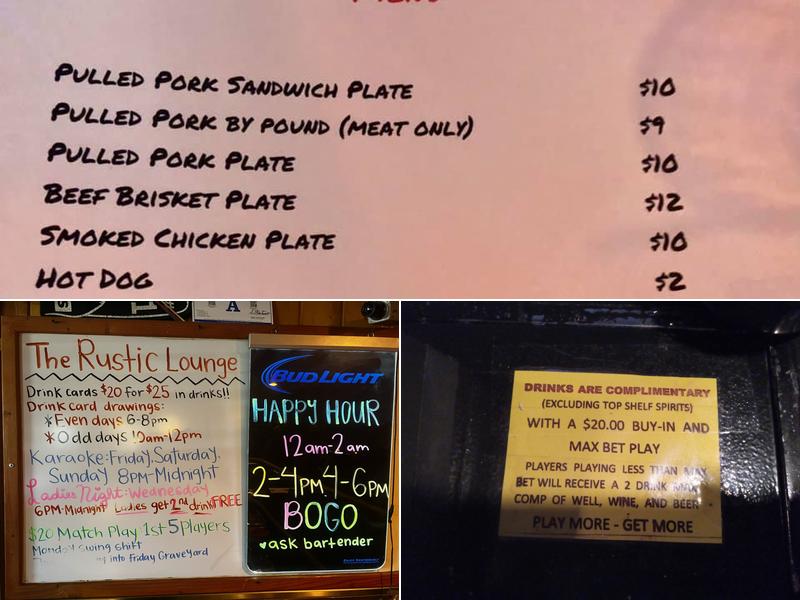 PULLED PORK SANDWICH PLATE $10
PULLED PORK BY POUND (MEAT ONLY) $9
PULLED PORK PLATE $10
BEEF BRISKET PLATE $12
SMOKED CHICKEN PLATE $10
HOT DOG $2
The Rustic Lounge
Drink cards $20 for $25 in drinks!!
Drink card drawings:
*Even days 6-8pm
*Odd days 10am-12pm
Karaoke: Friday, Saturday,
Sunday 8PM-Midnight
Ladies Night: Wednesday
6PM-Midnight Ladies get 2nd drink FREE
$20 Match Play 1st 5 Players
Monday swing shift
into Friday Graveyard
BUD LIGHT
HAPPY HOUR
12am-2am
2-4PM 4-6PM
BOGO
♥ask bartender
DRINKS ARE COMPLIMENTARY
(EXCLUDING TOP SHELF SPIRITS)
WITH A $20.00 BUY-IN AND
MAX BET PLAY
PLAYERS PLAYING LESS THAN MAX
BET WILL RECEIVE A 2 DRINK MAX
COMP OF WELL, WINE, AND BEER
PLAY MORE - GET MORE